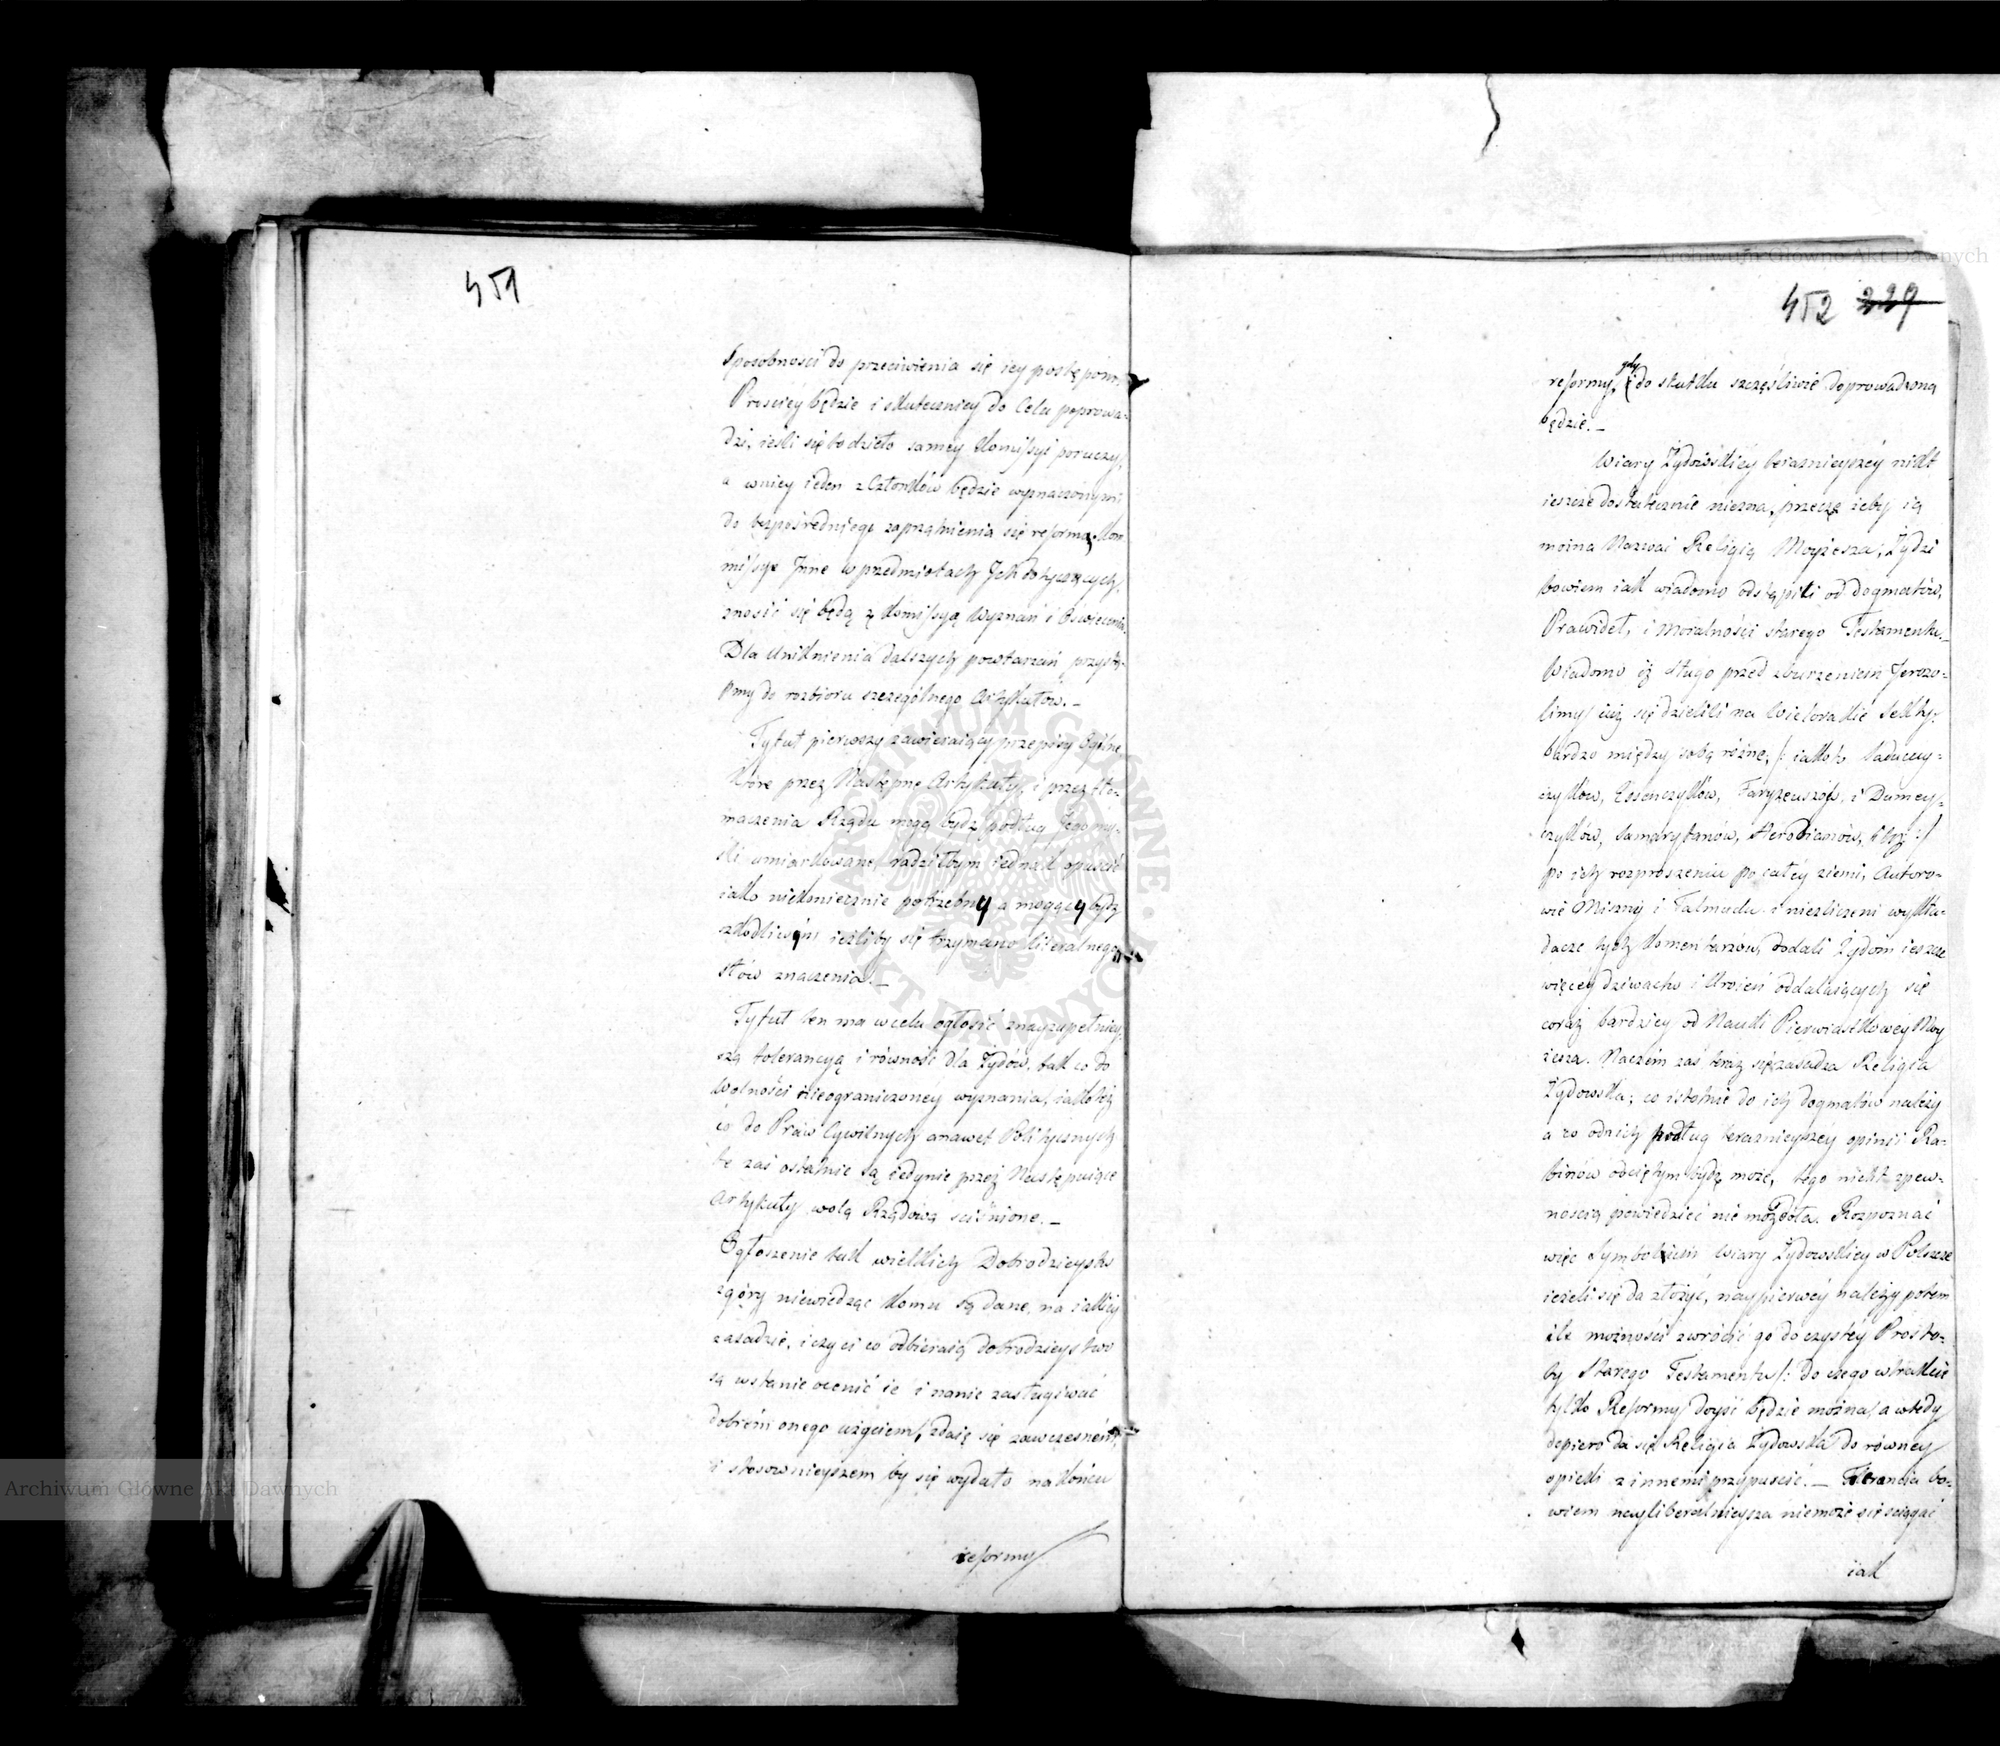 451
sposobności do przeciwienia się iey postępom.
Prościéy będzie i skuteczniey do Celu poprowa-
dzi, iesli się to dzieło samey Kommissyi poruczy,
a w niey ieden z Członków będzie wyznaczonym
do bezpośredniego zaprzątnienia się reformą, Kom
missye Inne w przedmiotach Ich dotyczących,
znosić się będą z Komissyą Wyznań i Oswiecenia.
Dla uniknienia dalszych powtarzań przystą-
pmy do rozbioru szczególnego Artykułów. –
Tytuł pierwszy zawieraiący przepisy Ogólne
które przez Następne Artykuły, i przez tło-
maczenia Rządu mogą bydź podług Jego my-
śli umiarkowane, radziłbym iednak opuścić
iako niekoniecznie potrzebny a mogący bydź
szkodliwym ieżliby się trzymano literalnego
słów znaczenia. –
Tytuł ten ma w celu ogłosić nayzupełniey-
szą tolerancyą i równość dla Żydów, tak co do
Wolności nieograniczoney wyznania, iakoteż
co do Praw Cywilnych a nawet Politycznych
te zaś ostatnie są iedynie przez Następuiące
Artykuły wolą Rządową ściśnione. –
Ogłoszenie tak wielkich Dobrodzieystw
zgóry niewiedząc komu są dane, na iakiéy
zasadzie, i czy ci co odbieraią dobrodzieystwo
są wstanie ocenić ie i nanie zasługiwać
dobrém onego użyciem, zdaię się zawczesném,
i stosownieyszem by się wydało na końcu
reformy
Archiwum Główne Akt Dawnych
452 229
reformy, gdy do skutku szczęśliwie doprowadzoną
będzie. –
Wiary Żydowskiéy teraznieyszéy nikt
ieszcze dostatecznie niezna, przeczę żeby ią
można Nazwać Religią Moyżesza, Żydzi
bowiem iak wiadomo odstąpili od dogmatów,
Prawideł, i moralności starego Testamentu. –
Wiadomo iż długo przed zburzeniem Jerozo-
limy iuż się dzielili na Wielorakie Sekty,
bardzo między sobą różne, /: iakoto Saducey-
czyków, Essenczyków, Faryzeuszów, i
czyków, Samarytanów, Herodianów, :/
po ich rozproszeniu po całéy ziemi, Autoro-
wie Miszny i Talmudu i niezliczeni wykła-
dacze tych Komentarzów, dodali Żydom ieszcze
więcey dziwactw i Uroień oddalaiących się
coraz bardziey od Nauki Pierwiastkowéy Moy
żesza. Naczém zaś teraz się zasadza Religia
Żydowska; co istotnie do ich dogmatów należy
a co od nich podług teraznieyszéy opinii Ra-
binów odciętym bydź może, tego nikt zpew-
nością powiedzieć nie może. Rozpoznać
więc Symbolum Wiary Żydowskiey w Polszcze
ieżeli się da złożyć, naypierwéy należy potem
ile możności zwrócić go do czystéy Prosto-
ty Starego Testamentu /: do czego w trakcie
tylko Reformy doyść będzie można, a wtedy
dopiero da się Religia Żydowska do równey
opieki z innemi przypuścić. – Tolerancia bo-
wiem nayliberalnieysza niemoże się ściągać
iak
Archiwum Główne Akt Dawnych
ARCHIWUM GŁÓWNE AKT DAWNYCH